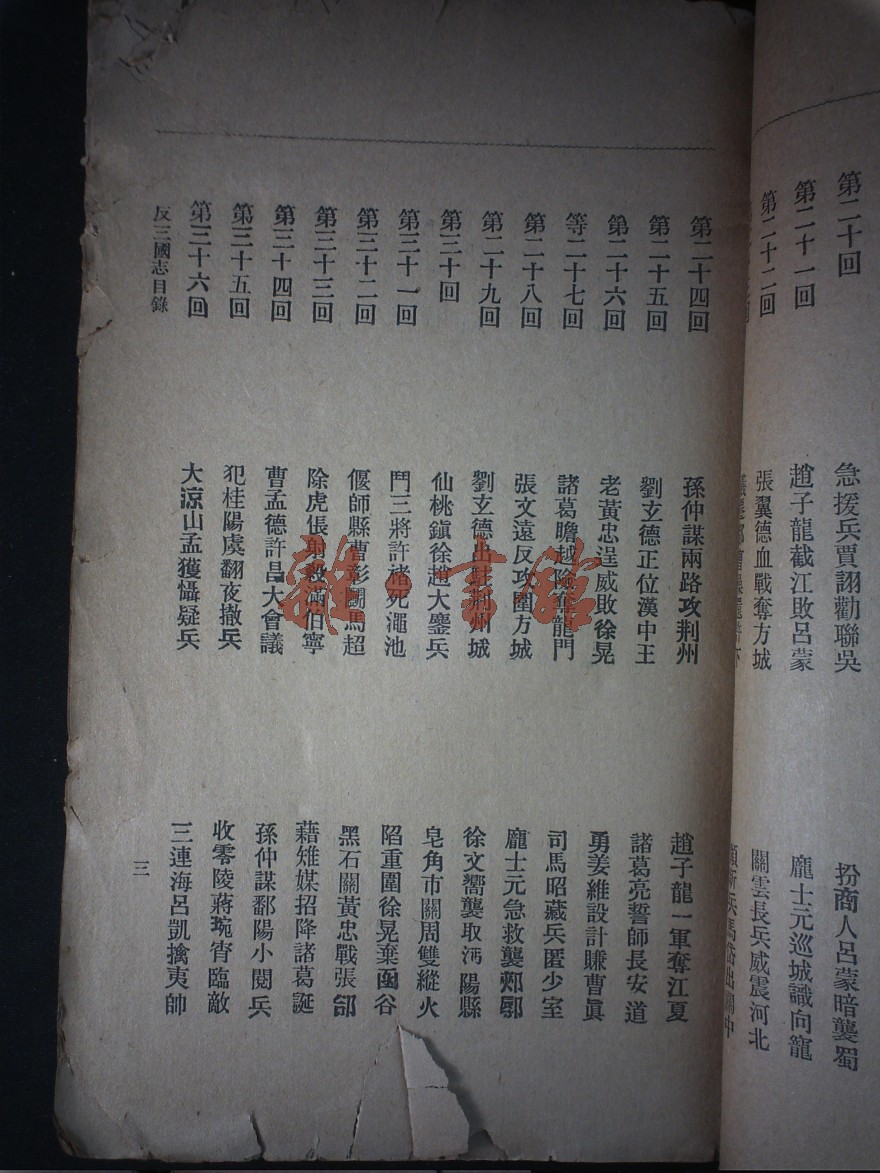 第二十回 急援兵賈詡勸聯吳 扮商人呂蒙暗襲蜀
第二十一回 趙子龍截江敗呂蒙 龐士元巡城識向寵
第二十二回 張翼德血戰奪方城 關雲長兵威震河北
第二十四回 孫仲謀兩路攻荆州 趙子龍一軍奪江夏
第二十五回 劉玄德正位漢中王 諸葛亮誓師長安道
第二十六回 老黃忠逞威敗徐晃 勇姜維設計賺曹眞
等二十七回 諸葛瞻越險奪龍門 司馬昭藏兵匿少室
第二十八回 張文遠反攻圍方城 龐士元急救襲郟鄏
第二十九回 劉玄德出駐荆州城 徐文嚮襲取沔陽縣
第三十回 仙桃鎭徐趙大鏖兵 皂角市關周雙縱火
第三十一回 鬥三將許褚死澠池 陷重圍徐晃棄函谷
第三十二回 偃師縣曹彰鬭馬超 黑石關黃忠戰張郃
第三十三回 除虎倀射殺滿伯寧 藉雉媒招降諸葛誕
第三十四回 曹孟德許昌大會議 孫仲謀鄱陽小閱兵
第三十五回 犯桂陽虞翻夜撤兵 收零陵蔣琬宵臨敵
第三十六回 大涼山孟獲懾疑兵 三連海呂凱擒夷帥
反三國志目錄 三
雜·書館